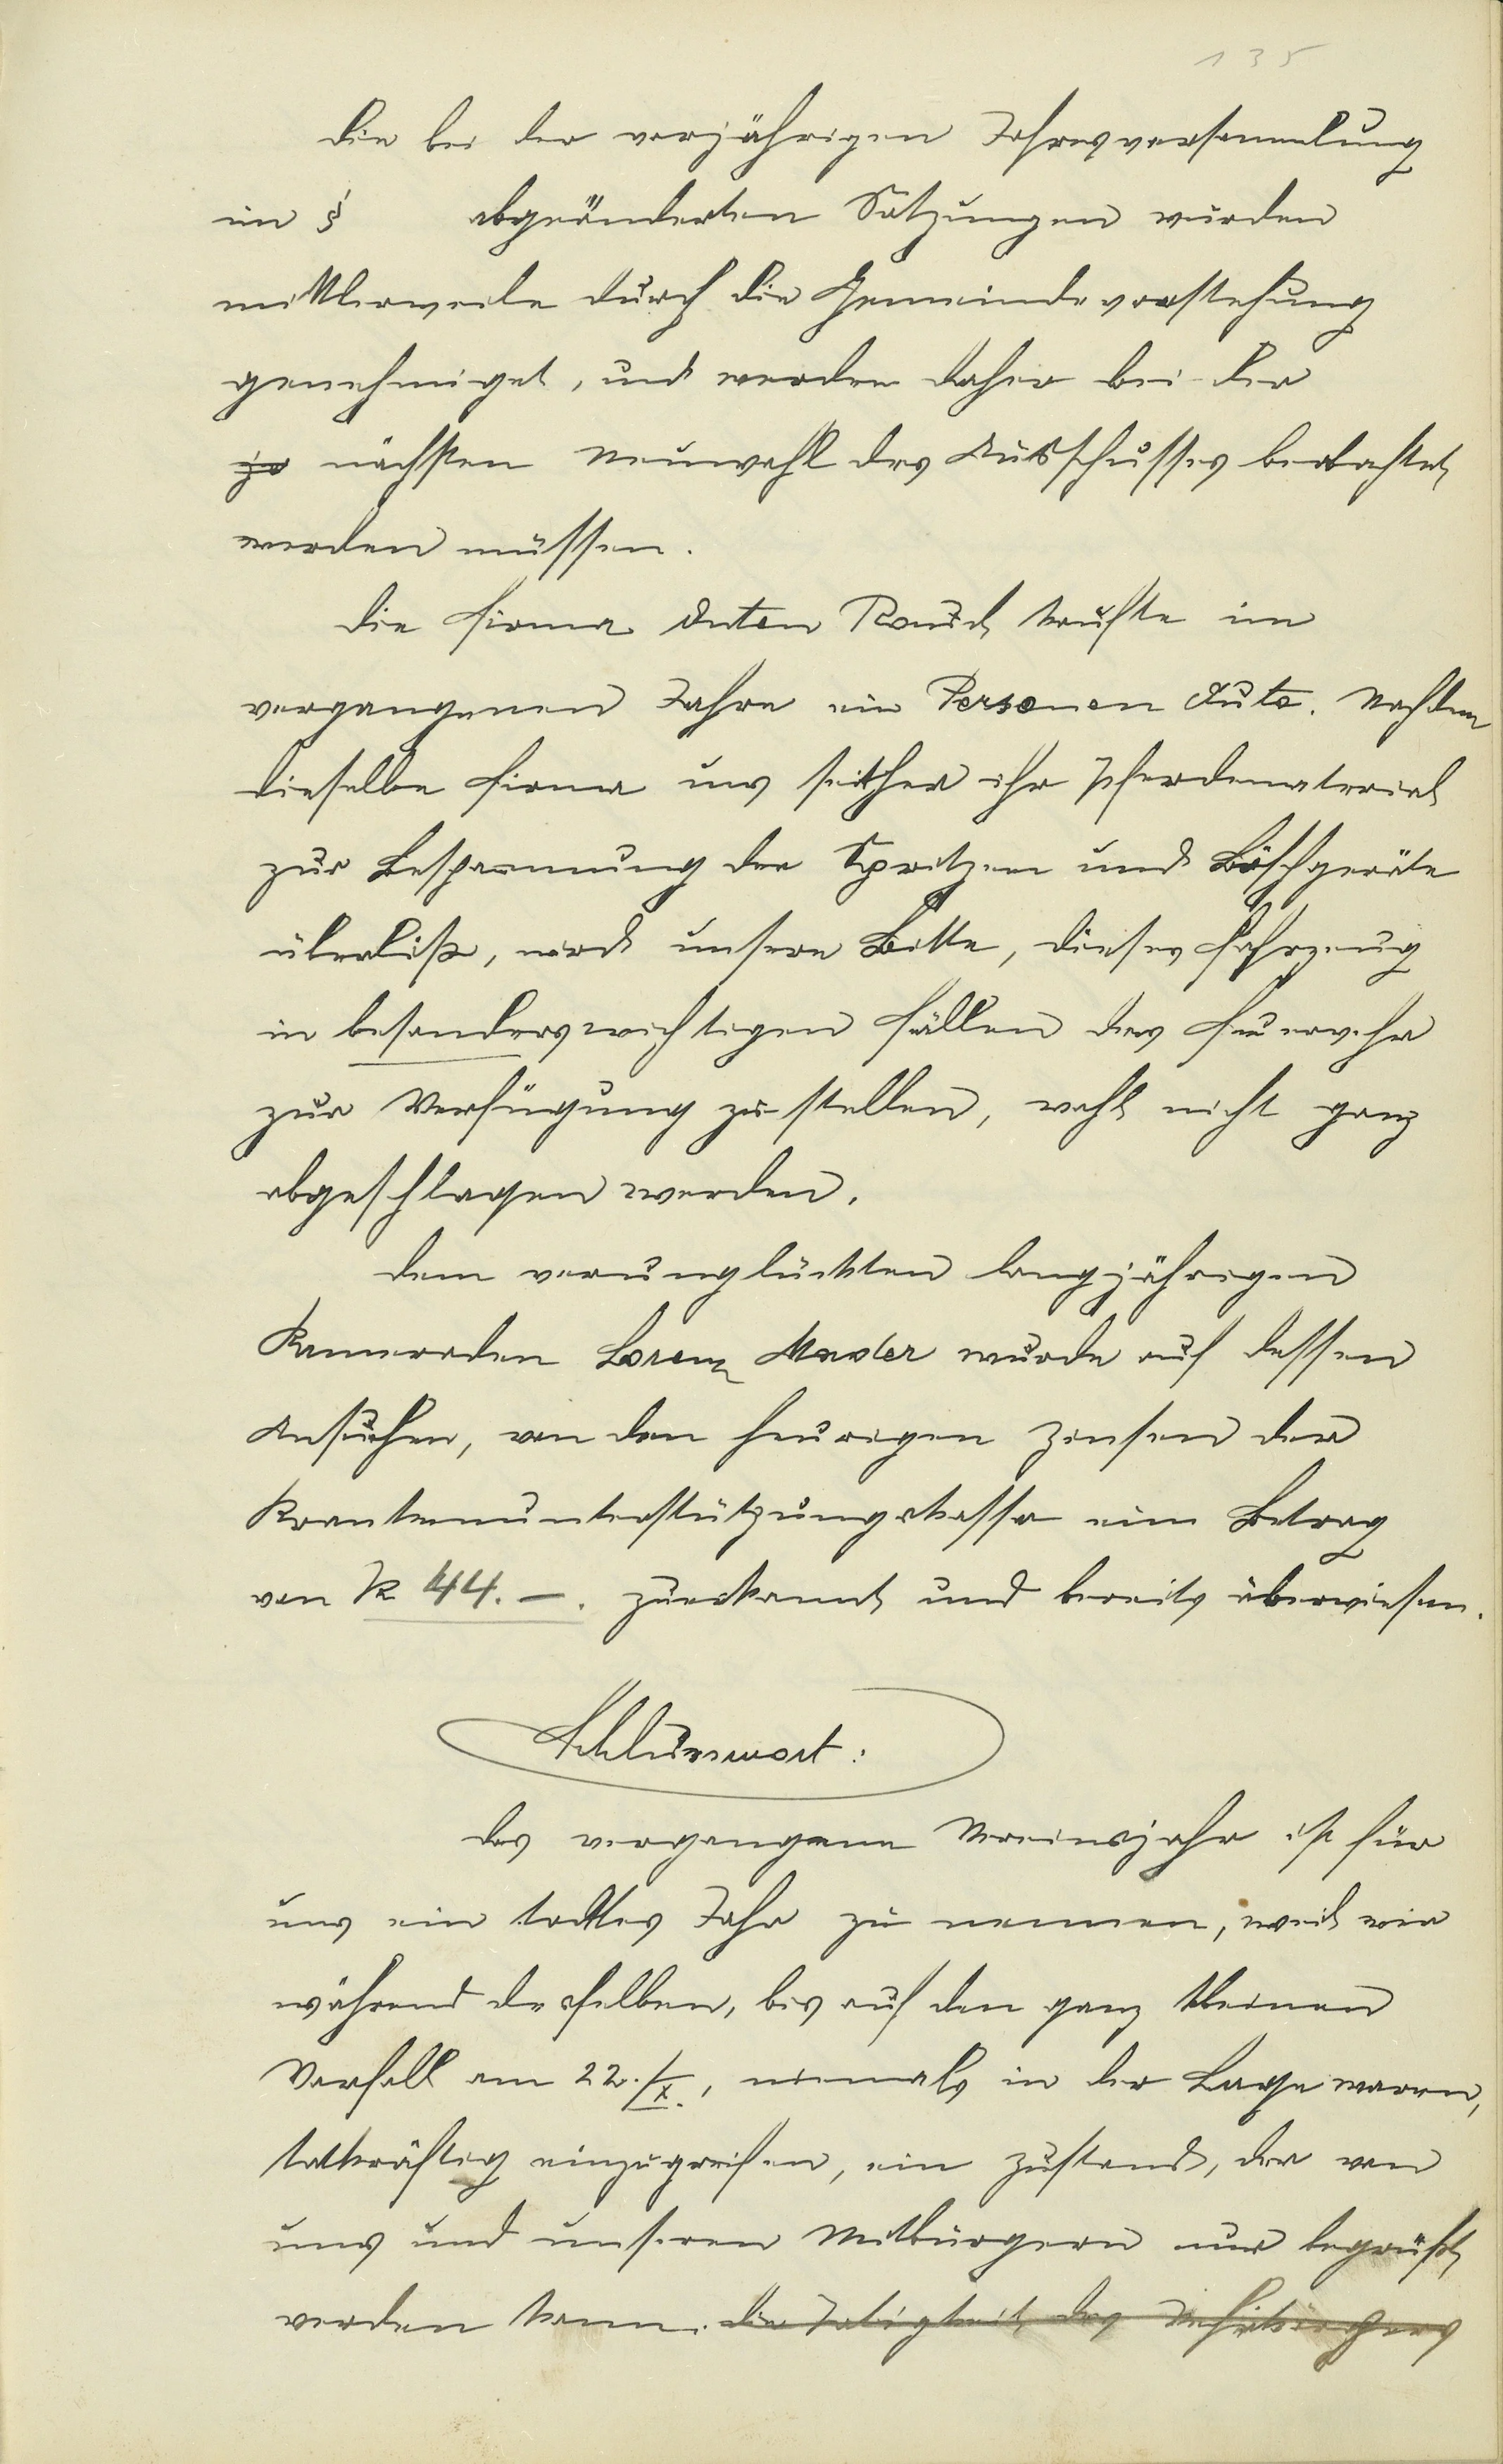 135
Die bei der vorjährigen Jahresversammlung
im § abgeänderten Satzungen wurden
mittlerweile durch die Gemeindevorstehung
genehmiget, und werden daher bei der
je nächsten Neuwahl des Ausschusses beobachtet
werden müssen.
Die Firma Anton Rauch kaufte im
vergangenen Jahre ein Personen Auto. Nachdem
dieselbe Firma uns seither ihr Pferdematerial
zur Bespannung der Spritzen und Löschgeräte
überließ, wird unsere Bitte, dieses Fahrzeug
in besonders wichtigen Fällen der Feuerwehr
zur Verfügung zu stellen, wohl nicht ganz
abgeschlagen werden.
Dem verunglückten langjährigen
Kameraden Lorenz Mader wurde auf dessen
Ansuchen, von den heurigen Zinsen der
Krankenunterstützungskassa ein Betrag
von K 44.–. zuerkannt und bereits überwiesen.
Schlusswort:
Das vergangene Vereinsjahr ist für
uns ein todtes Jahr zu nennen, weil wir
während desselben, bis auf den ganz kleinen
Vorfall am 22./X., niemals in der Lage waren,
tatkräftig einzugreifen, ein Zustand, der von
uns und unseren Mitbürgern nur begrüßt
werden kann. Die Tätigkeit des